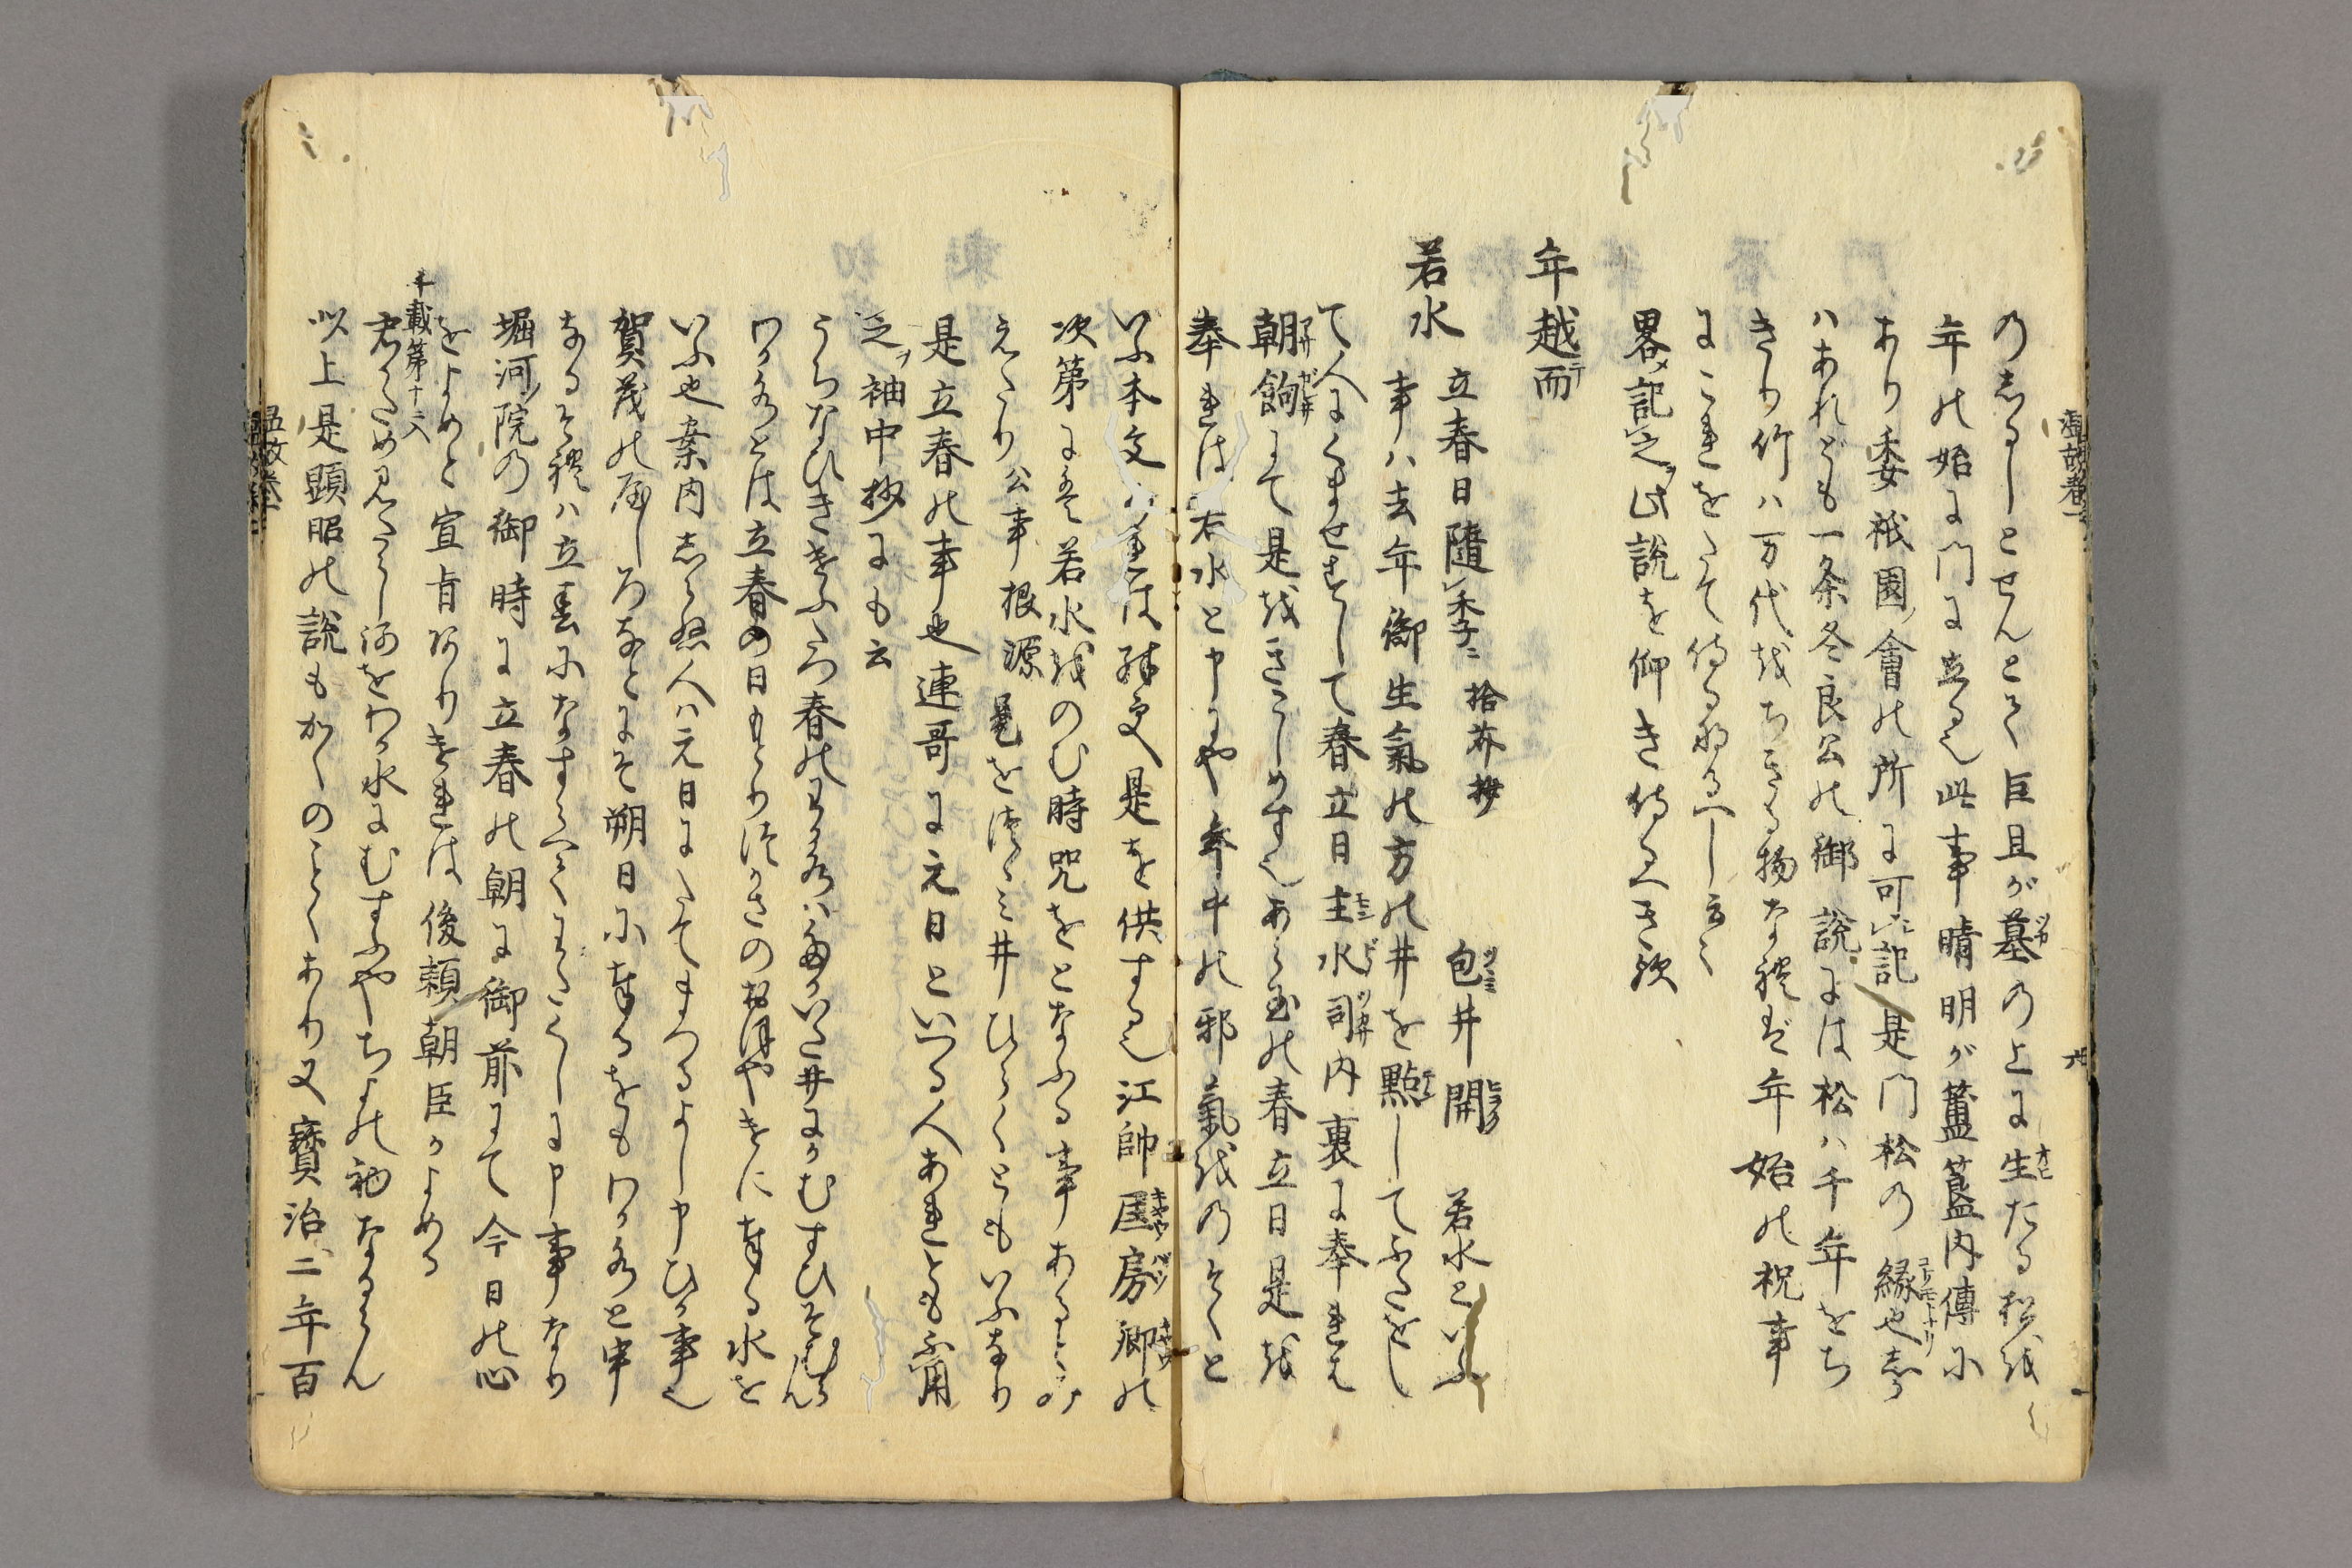 のしるしとせんとて巨旦が墓ツカの上に生オヒたる松を
年の始に門に立る也此事晴明が簠簋内傳に
あり委祇園ノ會の所に可レ記是門松の縁コトノモトナリ也しか
ハあれども一条冬良公の御説には松ハ千年をち
きり竹ハ万代をちきる物なれば年始の祝事
にこれをたて侍るなるへし云々
畧メ記レ之ヲ此説を仰き侍るへき欤
年越而
若水 立春日隨レ季ニ 拾芥抄 包ツヽミ井開ヒラク 若水といふ
事ハ去年御生氣の方の井を點してふたをし
て人にくませすして春立日主水司内裏に奉れは
朝餉にて是をきこしめす也あら玉の春立日是を
奉れは若水と申にや年中の邪氣をのそくと
いふ本文 是を供する也江帥匡房卿の
次第にも若水をのむ時咒をとなふる事あるとみ
えたり公事根源 是をつゝみ井ひらくともいふなり
是立春の事也連哥に元日といへる人あれとも不用
之ヲ袖中抄にも云
うちなひききふたつ春のわか水ハ
わか水とは立春の日もとりつかさのおほやけに奉る水を
いふ也案内しらぬ人ハ元日にたてまつるよし申ひか事也
賀茂のやしろなとにそ朔日に奉るをもわか水と申
なるそれハ立春になすらへてわたくしに申事なり
堀河ノ院の御時に立春の朝に御前にて今日の心
をよめと宣旨ありけれは後頼朝臣かよめる
千載第十六
君かため みたらし河をわか水にむすふやちよの初なるらん
以上是顕昭の説もかくのことくあり又寶治二年百